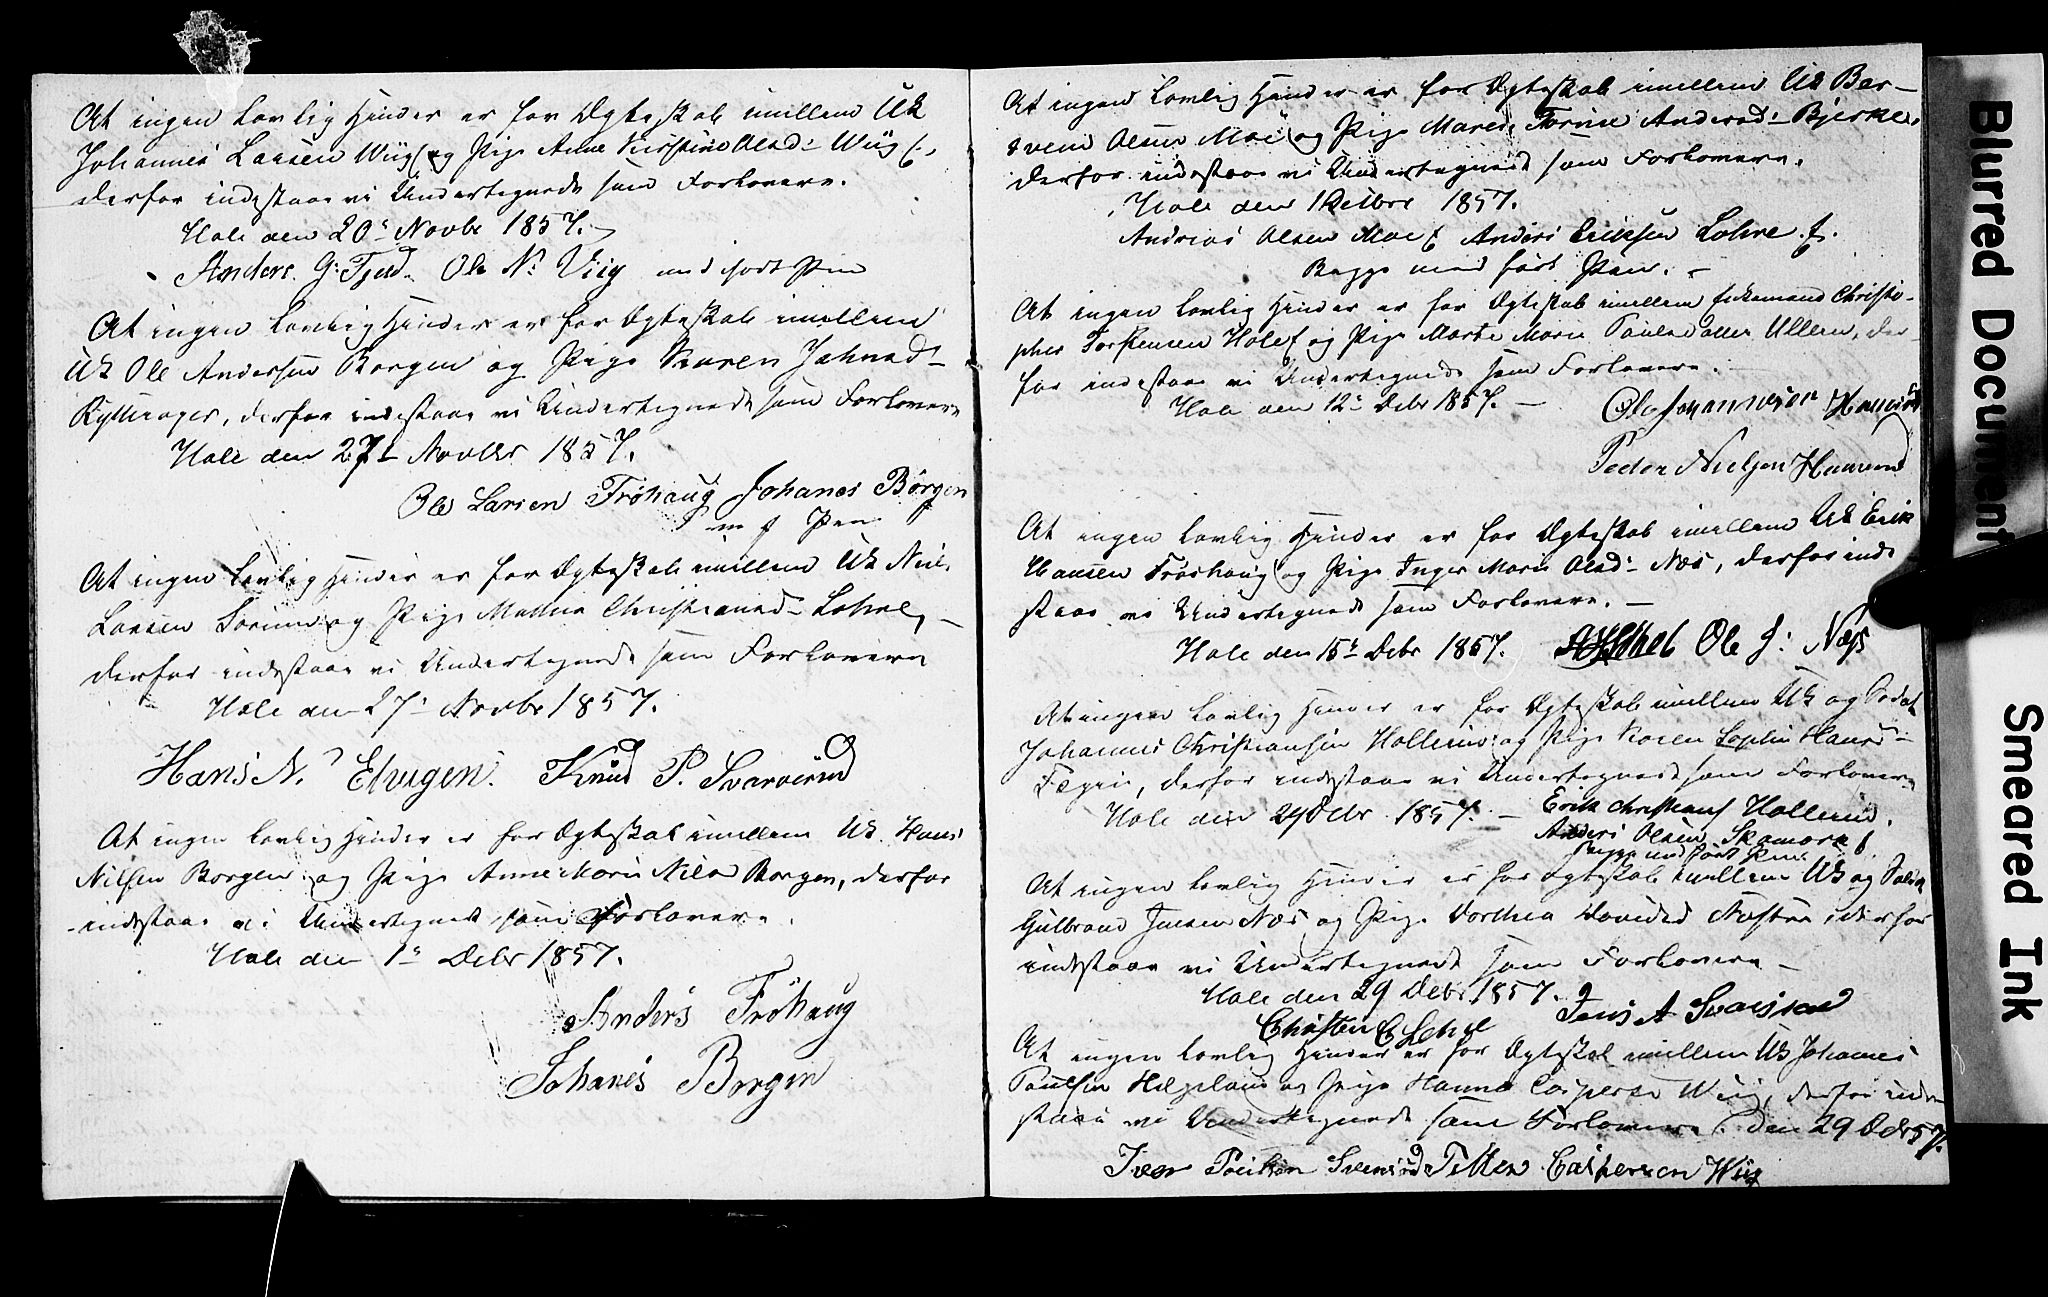 At ingen Lovlig Hinder er for Ægteskab imellem Uk
Johannes Larsen Wiig og Pige Anne Kirstine Olsd: Wiig
derfor indestaar vi Undertegnede som Forlovere.
Hole den 20 Novbr 1857.
Anders G: Gjesd. Ole N: Viig med ført Pen
At ingen Lovlig Hinder er for Ægteskab imellem
Uk Ole Andersen Borgen og Pige Karen Johnsd
Rytterager, derfor indestaar vi Undertegnede som Forlovere
Hole den 27 Novbr 1857.
Ole Larsen Frøhaug Johanes Børgen
m f Pen
At ingen Lovlig Hinder er for Ægteskab imellem Uk Niels
Larsen Sørum og Pige Mathia Christiansd Lohre,
derfor indestaar vi Undertegnede som Forlovere
Hole den 27 Novbr 1857.
Hans N. Elvigen. Knud P. Svarverud
At ingen Lovlig Hinder er for Ægteskab imellem Uk. Hans
Nilsen Borgen og Pige Anne Marie Nilsd Borgen, derfor
indestaar vi Undertegnede som Forlovere.
Hole den 1 Debr 1857.
Anders Frøhaug
Johanes Borgen
At ingen Lovlig Hinder er for Ægteskab imellem Uk
Olsen Moe og Pige Maren Andersd: Bjerke,
derfor indestaar vi Undertegnede som Forlovere.
Hole den 1 Debr 1857.
Andreas Olsen Moe Anders Eriksen Lohre
Begge med ført Pen.
At ingen Lovlig Hinder er for Ægteskab imellem Enkemand Christo-
pher Torstensen Hole og Pige Marte Marie Paulsdatter Ullern, der-
for indestaar vi Undertegnede som Forlovere.
Hole den 12 Debr 1857. Ole Johannesen
Peder Nielsen
At ingen Lovlig Hinder er for Ægteskab imellem Uk Erik
Hansen Frøshaug og Pige Inger Marie Olsd: Næs, derfor inde
staar vi Undertegnede som Forlovere.
Hole den 15 Debr 1857. Ole J: Næss
At ingen Lovlig Hinder er for Ægteskab imellem Uk og Soldat
Johannes Christiansen Hollerud og Pige Karen Sophie Hansd
Fægri, derfor indestaar vi Undertegnede som Forlovere
Hole den 24 Debr 1857. Erik Christians Hollerud.
Anders Olsen
Begge med ført Pen
At ingen Lovlig Hinder er for Ægteskab imellem Uk og Soldat
Gulbrand Jensen Næs og Pige Dorthea Davidsd Næsten derfor
indestaar vi Undertegnede som Forlovere
Hole den 29 Debr 1857. Jens A
Christen
At ingen Lovlig Hinder er for Ægteskab imellem Uk Johannes
Paulsen Helgeland og Pige Hanna Caspersd Wiig, derfor inde
staar vi Undertegnede som Forlovere. Den 29 Debr 57.
Iver Paulsen Svensrud Casperson Wiig
Blurred Document
Smeared Ink